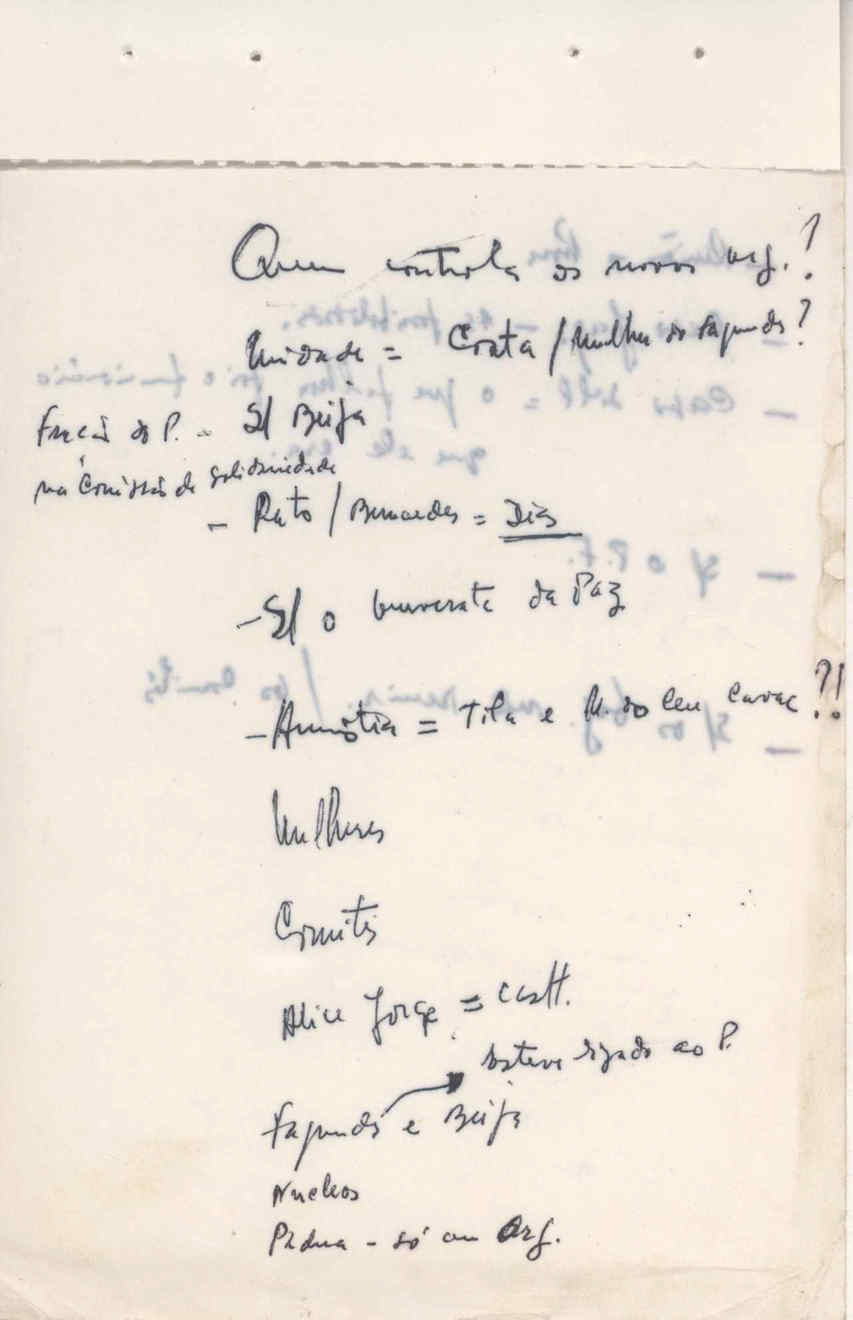 Quem controla os novos org.?
Unidade = Costa / Mulher do Fagundes?
Fracção do P. - S/ Beija
na Comissão de Solidariedade
- Rato / Bernardes = Dias
- S/ o da Paz
- Amnistia = Tila e M. do Céu ?!!
Mulheres
Comités
Alice Jorge =
Esteve ligado ao P.
Fagundes e Beija
Nucleos
Pádua - só em Org.